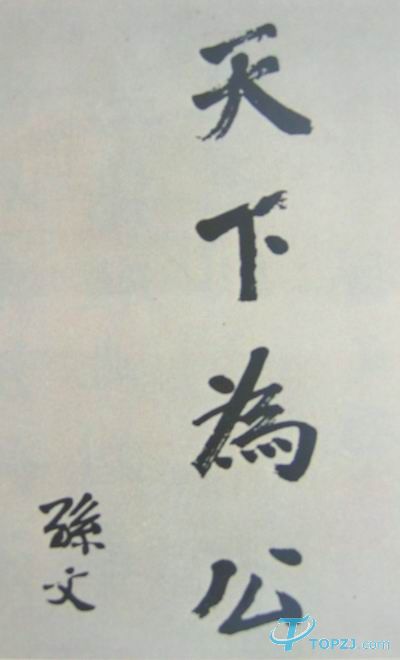 天下為公
孫文
TOPZJ.com